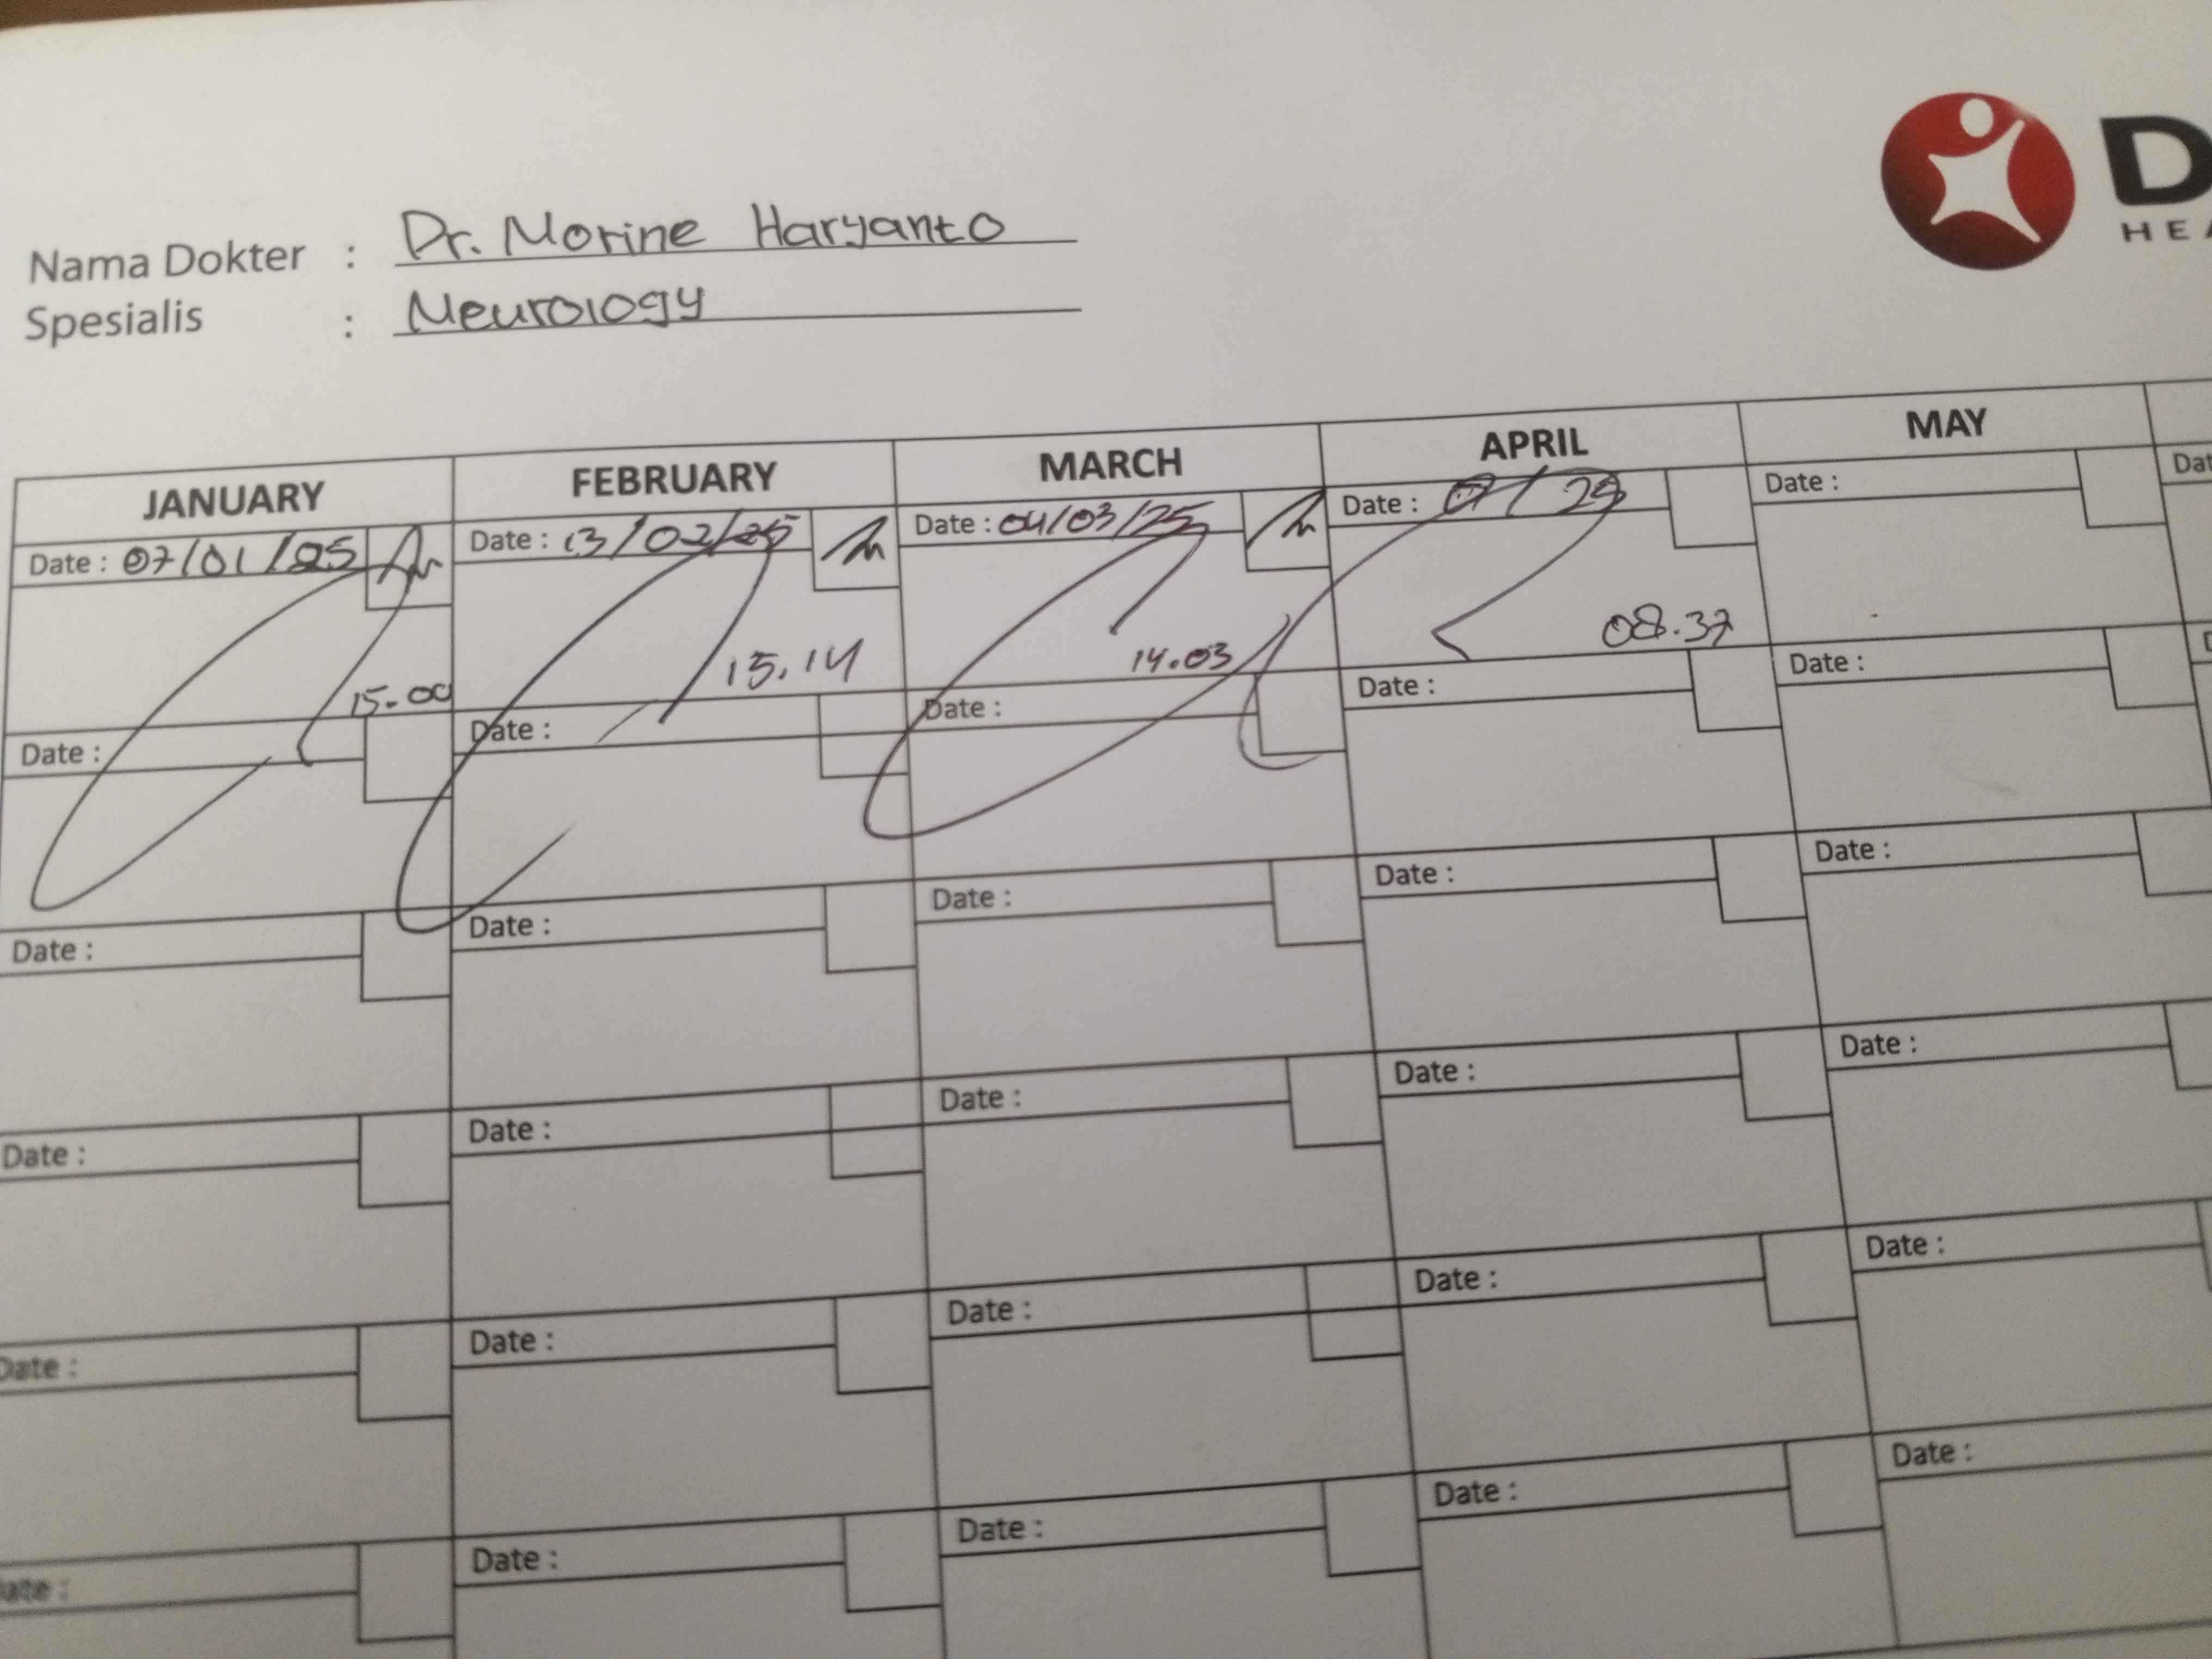 D
HEA
Nama Dokter : Dr. Morine Haryanto
Spesialis : Neurology
JANUARY FEBRUARY MARCH APRIL MAY
Date : 07/01/25 Date : 13/02/25 Date : 04/03/25 Date : Date : Dat
15.00 15.14 14.03 08.37
Date : Date : Date : Date : Date :
Date : Date : Date : Date : Date :
Date : Date : Date : Date : Date :
Date : Date : Date : Date : Date :
ate : Date : Date : Date : Date :